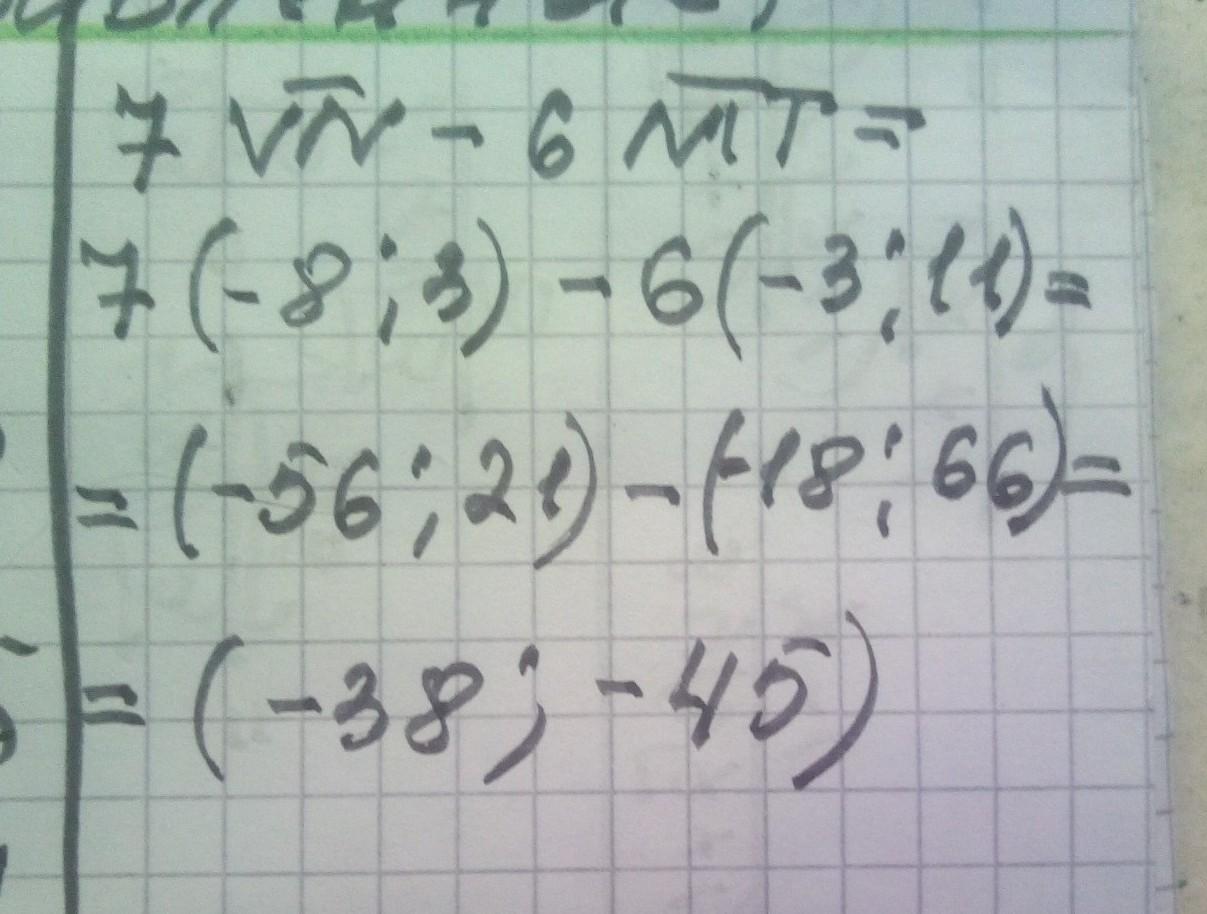 7 V̅N̅ - 6 M̅T̅ =
7 (-8 ; 3) - 6 (-3 ; 11) =
= (-56 ; 21) - (-18 ; 66) =
= (-38 ; -45)